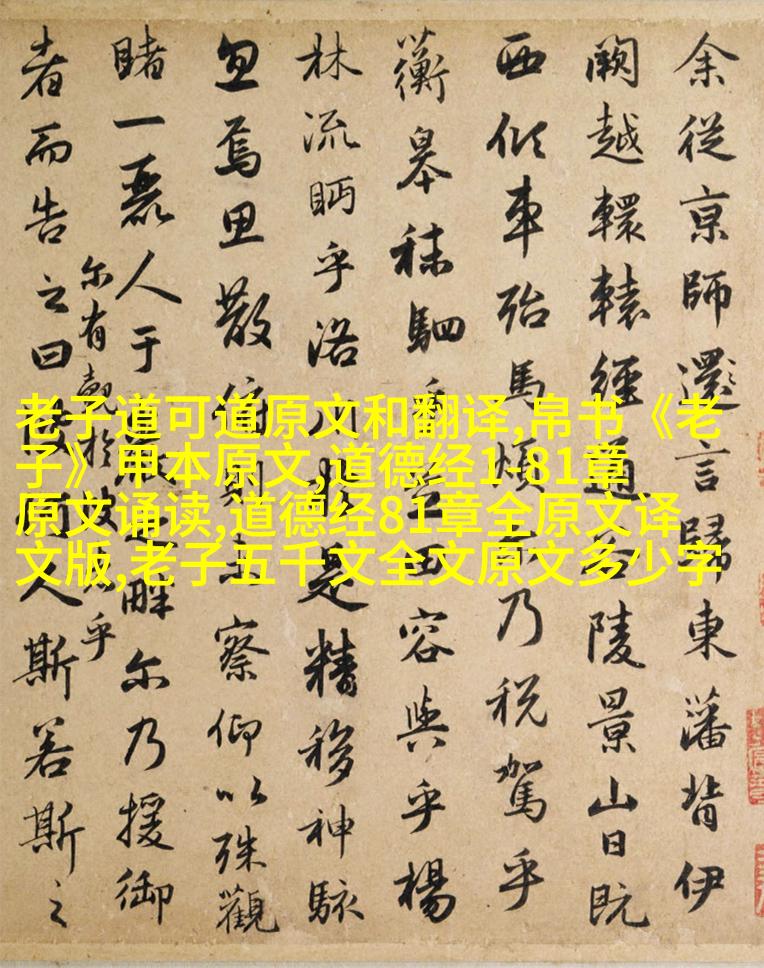 余從京師還言歸東藩背伊
闕越轘轅經通谷陵景山日既
西傾車殆馬煩尔乃税駕乎
蘅皋秣駟乎芝田容與乎楊
林流眄乎洛川於是精移神駭
忽焉思散俯則未察仰以殊觀
睹一麗人于巖之畔尔乃援御
者而告之曰彼何人斯若斯之
尔有覿於彼者乎
老子道可道原文和翻译,帛书《老
子》甲本原文,道德经1-81章
原文诵读,道德经81章全原文译
文版,老子五千文全文原文多少字